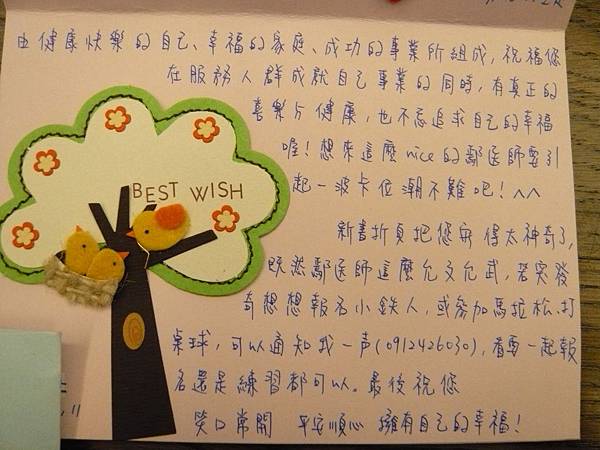 由健康快樂的自己、幸福的家庭、成功的事業所組成,祝福您
在服務人群成就自己事業的同時,有真正的
喜樂与健康,也不忘追求自己的幸福
喔!想來這麼nice的鄒医師要引
起一波卡位潮不難吧!^^
BEST WISH
新書折頁把您寫得太神奇了,
既然鄒医師這麼允文允武,若突發
奇想想報名小鉄人,或參加馬拉松、打
桌球,可以通知我一声(0912426030),看要一起報
名還是練習都可以。最後祝您
笑口常開 平安順心 擁有自己的幸福!